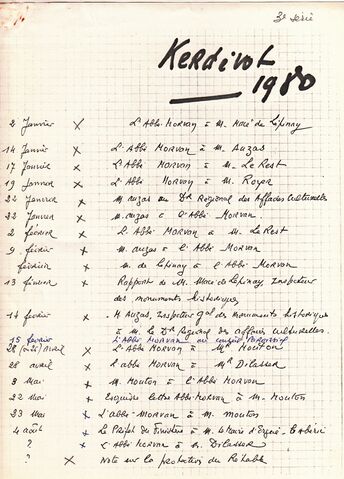 3e série
Kerdévot
1980
2 Janvier x L'Abbé MORVAN à M. de Lépinay
14 Janvier x L'Abbé MORVAN à M. Auzas
17 Janvier x L'Abbé MORVAN à M. Le Rest
19 Janvier x L'Abbé MORVAN à M. Royer
22 Janvier x M. Auzas au Dr Régional des Affaires Culturelles
22 Janvier x M. Auzas à l'Abbé MORVAN.
2 février x L'Abbé MORVAN à M. Le Rest
9 février x M. Auzas à l'Abbé MORVAN
février x M. de Lépinay à l'Abbé MORVAN
13 février x Rapport de M. Marc de Lépinay, Inspecteur
des monuments historiques
14 février x M. Auzas, Inspecteur gal des monuments historiques
à M. le Dr Régional des affaires culturelles.
15 février L'Abbé MORVAN au
avril x L'Abbé MORVAN à Mr MOUTON
28 avril x L'abbé MORVAN à Mr Dilasser
3 Mai x M. MOUTON à l'Abbé MORVAN
22 Mai x Esquisse lettre Abbé MORVAN à M. MOUTON
23 Mai x L'abbé MORVAN à M. MOUTON
4 août x Le Préfet du Finistère à M. le Maire d'Ergué-Gabéric
? x L'Abbé MORVAN à M. Dilasser
? x Note sur la protection du Retable